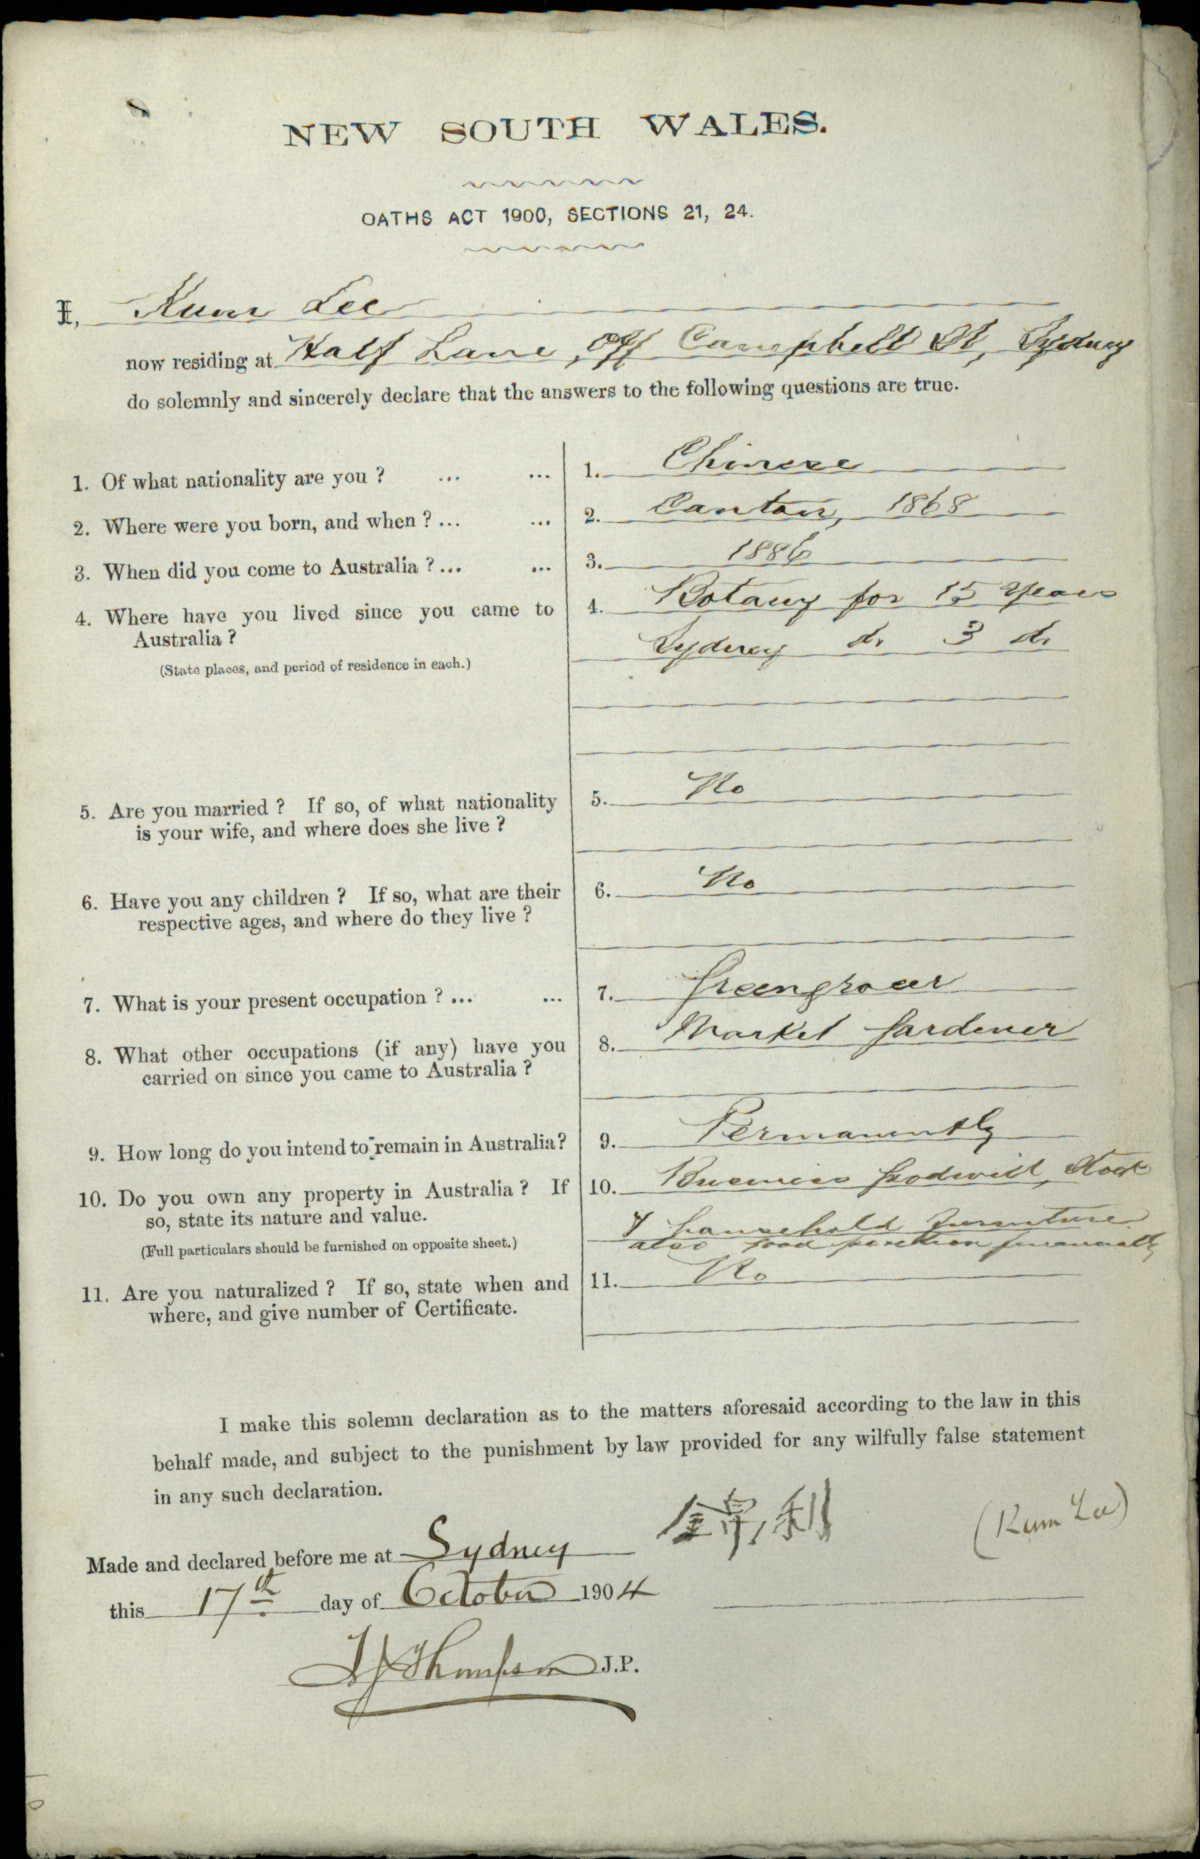 NEW SOUTH WALES.
OATHS ACT 1900, SECTIONS 21, 24.
I, Kum Lee
now residing at Half Lane, off Campbell St, Sydney
do solemnly and sincerely declare that the answers to the following questions are true.
1. Of what nationality are you ? ... ... 1. Chinese
2. Where were you born, and when ? ... ... 2. Canton, 1868
3. When did you come to Australia ? ... ... 3. 1886
4. Where have you lived since you came to 4. Botany for 15 years
Australia ? Sydney do 3 do
(State places, and period of residence in each.)
5. Are you married ? If so, of what nationality 5. No
is your wife, and where does she live ?
6. Have you any children ? If so, what are their 6. No
respective ages, and where do they live ?
7. What is your present occupation ? ... ... 7. Greengrocer
8. What other occupations (if any) have you 8. Market Gardener
carried on since you came to Australia ?
9. How long do you intend to remain in Australia? 9. Permanently
10. Do you own any property in Australia ? If 10. Business Goodwill, Stock
so, state its nature and value. & household furniture
(Full particulars should be furnished on opposite sheet.) also good position financially
11. Are you naturalized ? If so, state when and 11. No
where, and give number of Certificate.
I make this solemn declaration as to the matters aforesaid according to the law in this
behalf made, and subject to the punishment by law provided for any wilfully false statement
in any such declaration.
利 (Kum Lee)
Made and declared before me at Sydney
this 17th day of October 1904
Thompson J.P.